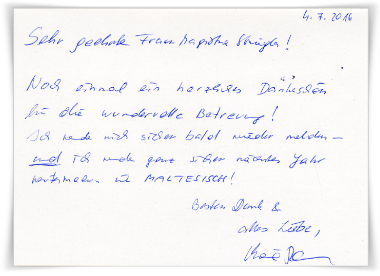 4.7.2016
Sehr geehrte Frau
Noch einmal ein herzliches Dankeschön
für die wundervolle Betreuung!
Ich werde mich sicher bald wieder melden –
und ich werde ganz sicher nächstes Jahr
weitermachen mit MALTESISCH!
Besten Dank &
alles Liebe,